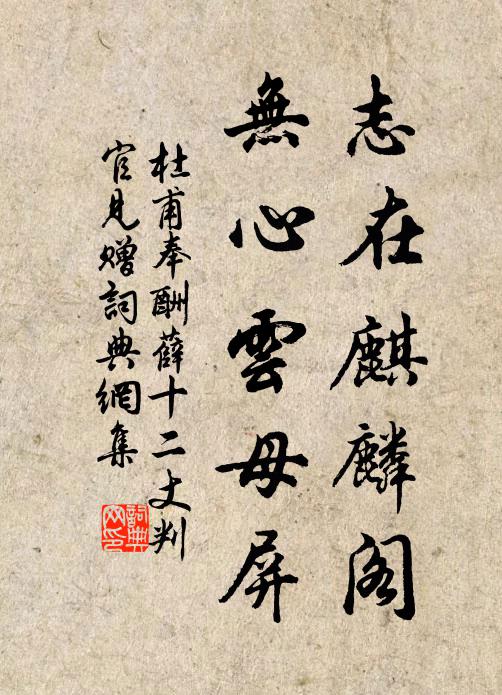 志在麒麟阁
無心雲母屏
杜甫奉酬薛十二丈判
官見贈詞典網集
詞典网印